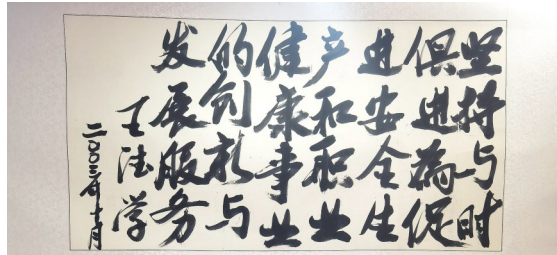 坚持与时
俱进為促
进安全生
产和职业
健康事业
的创新与
发展服务
王德学
二〇〇三年十月